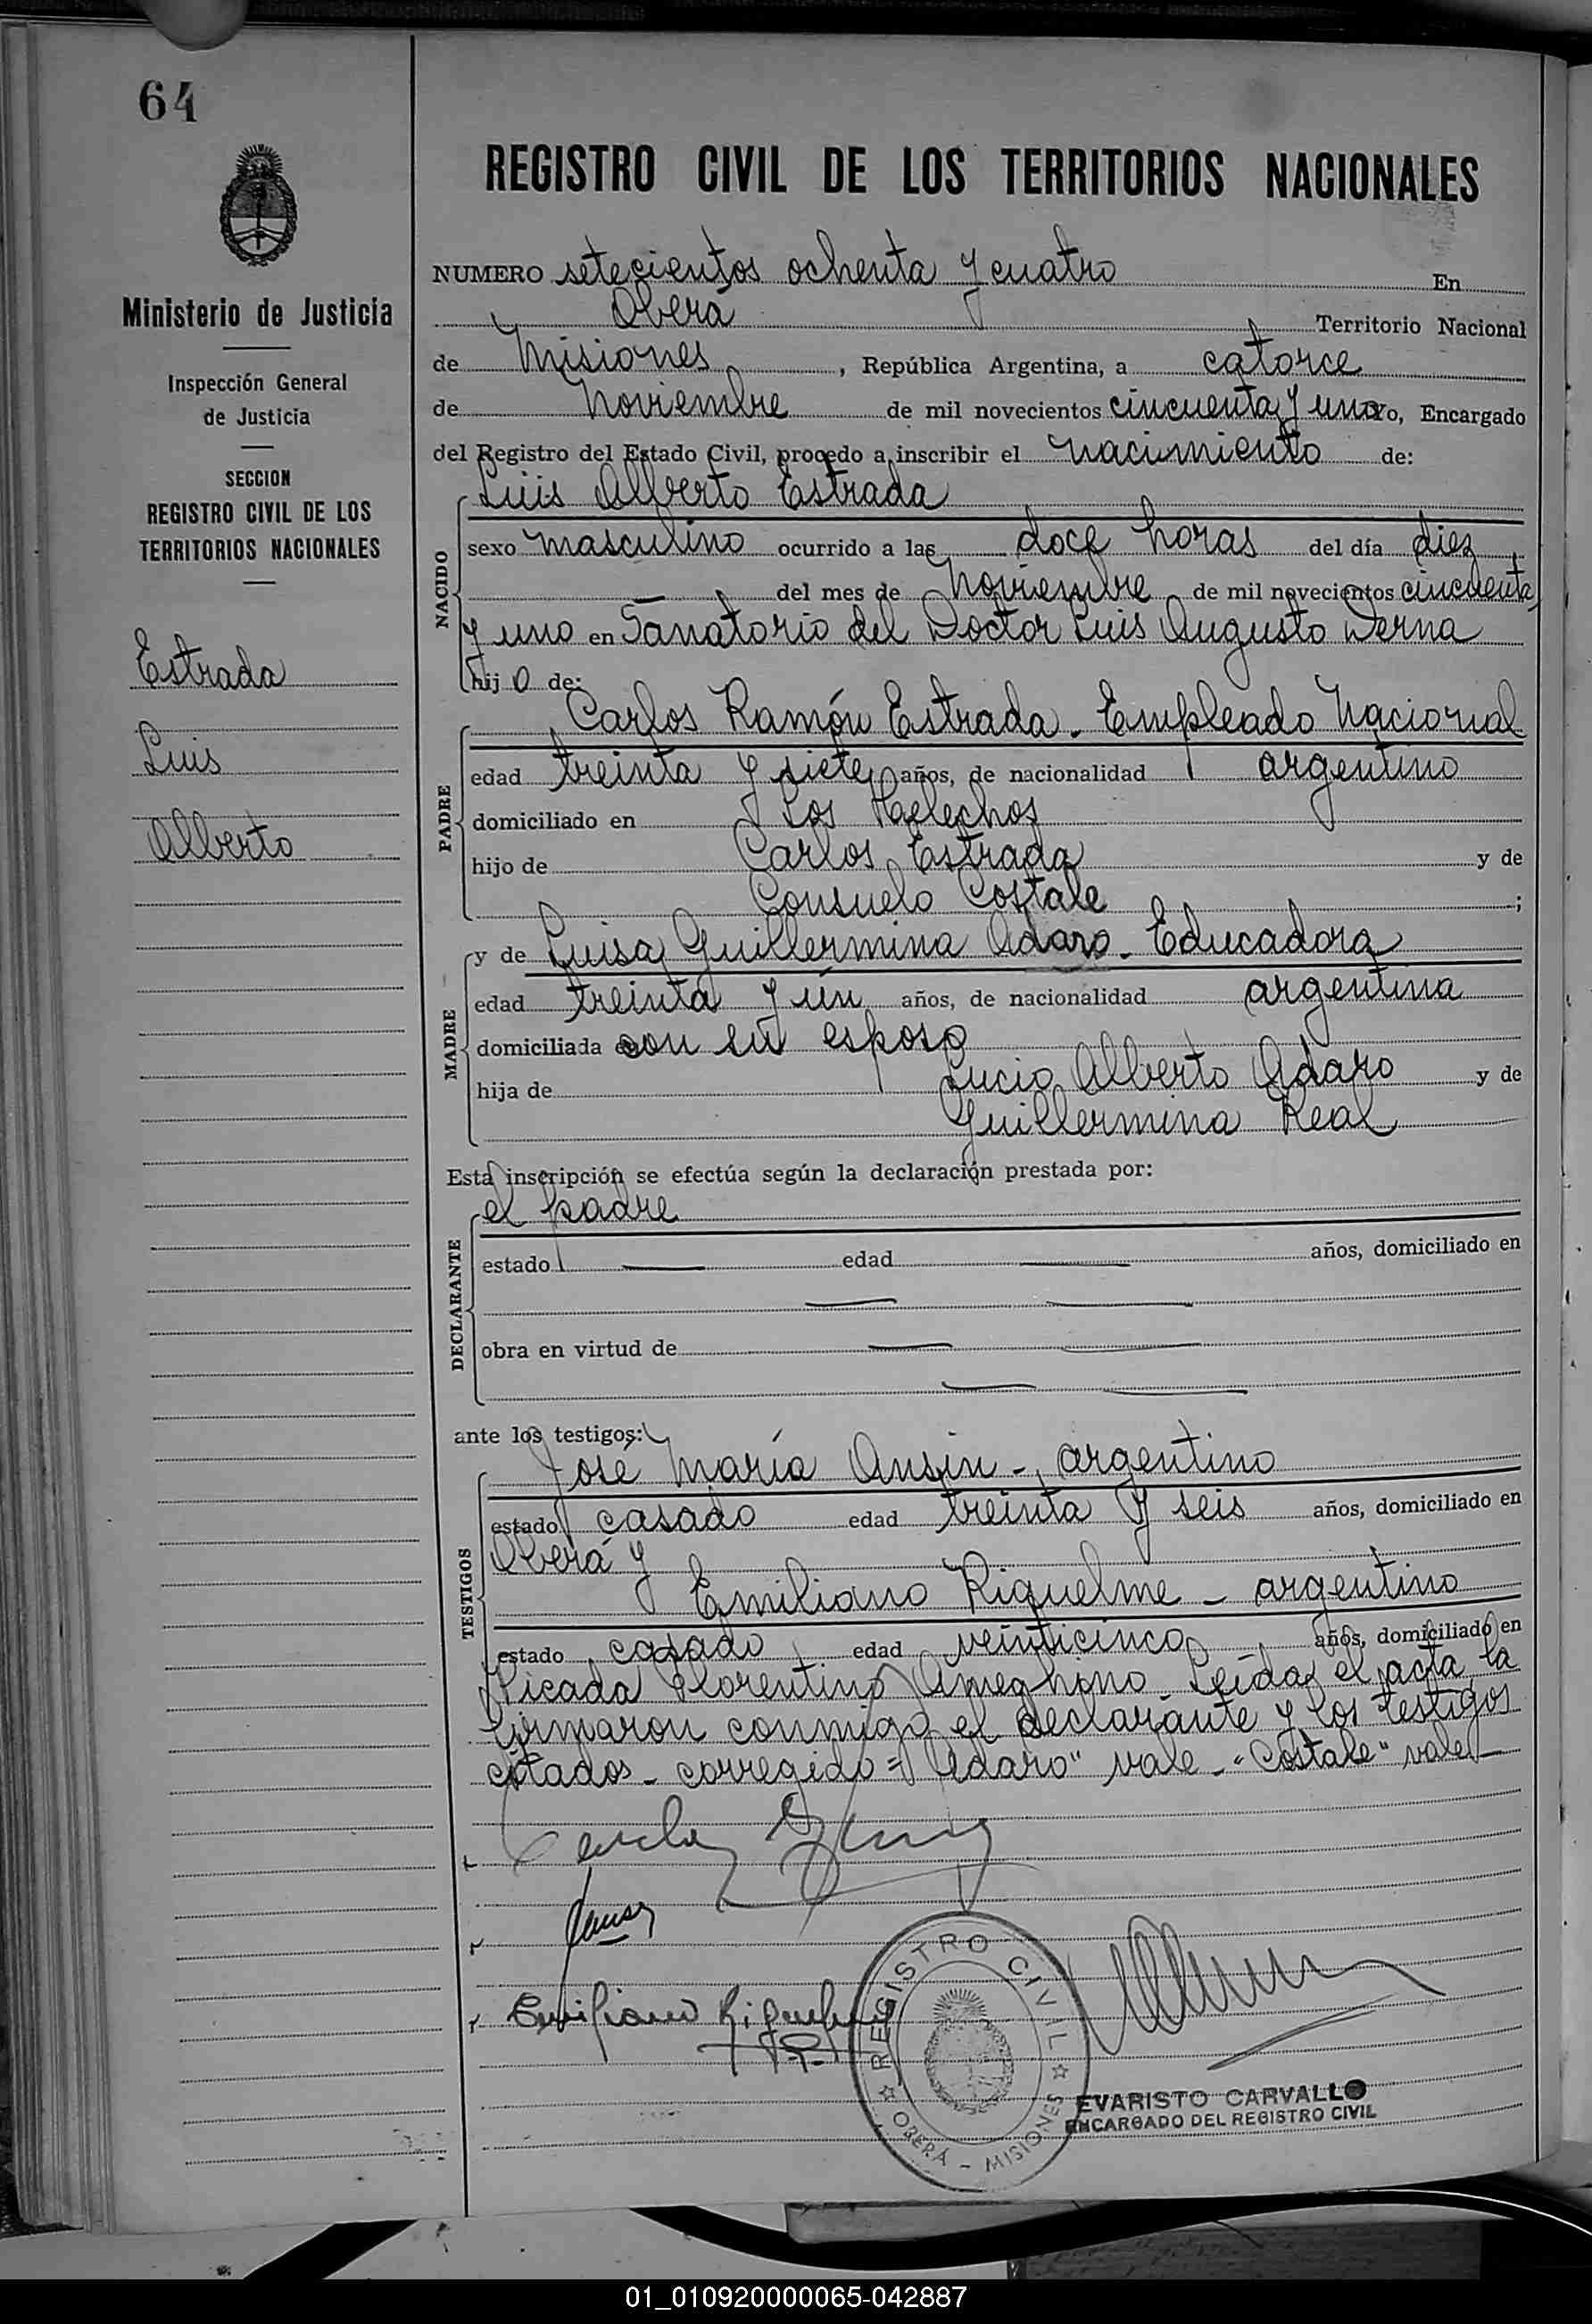 64
Ministerio de Justicia
Inspección General
de Justicia
SECCION
REGISTRO CIVIL DE LOS
TERRITORIOS NACIONALES
Estrada
Luis
Alberto
REGISTRO CIVIL DE LOS TERRITORIOS NACIONALES
NUMERO setecientos ochenta y cuatro En
Oberá Territorio Nacional
de Misiones, República Argentina, a catorce
de Noviembre de mil novecientos cincuenta y uno yo, Encargado
del Registro del Estado Civil, procedo a inscribir el nacimiento de:
Luis Alberto Estrada
NACIDO
sexo masculino ocurrido a las doce horas del día diez
del mes de Noviembre de mil novecientos cincuenta
y uno en Sanatorio del Doctor Luis Augusto Derna
hijo de:
Carlos Ramón Estrada - Empleado Nacional
PADRE
edad treinta y siete años, de nacionalidad argentino
domiciliado en Los Helechos
hijo de Carlos Estrada y de
Consuelo Costale;
y de Luisa Guillermina Adaro - Educadora
MADRE
edad treinta y un años, de nacionalidad argentina
domiciliada con su esposo
hija de Lucio Alberto Adaro y de
Guillermina Real
Esta inscripción se efectúa según la declaración prestada por:
el padre
DECLARANTE
estado — edad — años, domiciliado en
— —
obra en virtud de — —
— —
ante los testigos:
José María Ansin - argentino
TESTIGOS
estado casado edad treinta y seis años, domiciliado en
Oberá y
Emiliano Riquelme - argentino
estado casado edad veinticinco años, domiciliado en
Picada Florentino Ameghino. Leída el acta la
firmaron conmigo el declarante y los testigos
citados - corregido = "Adaro" vale - "Costale" vale -
Emiliano Riquelme
REGISTRO CIVIL
OBERÁ - MISIONES
EVARISTO CARVALLO
ENCARGADO DEL REGISTRO CIVIL
01_010920000065-042887